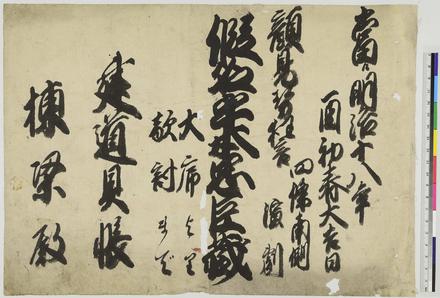 当ル明治十八年
酉初春大吉日
四條南側
演劇
顔見勢狂言
假名手本忠臣蔵
大席より
敵討まで
建道具帳
棟梁殿